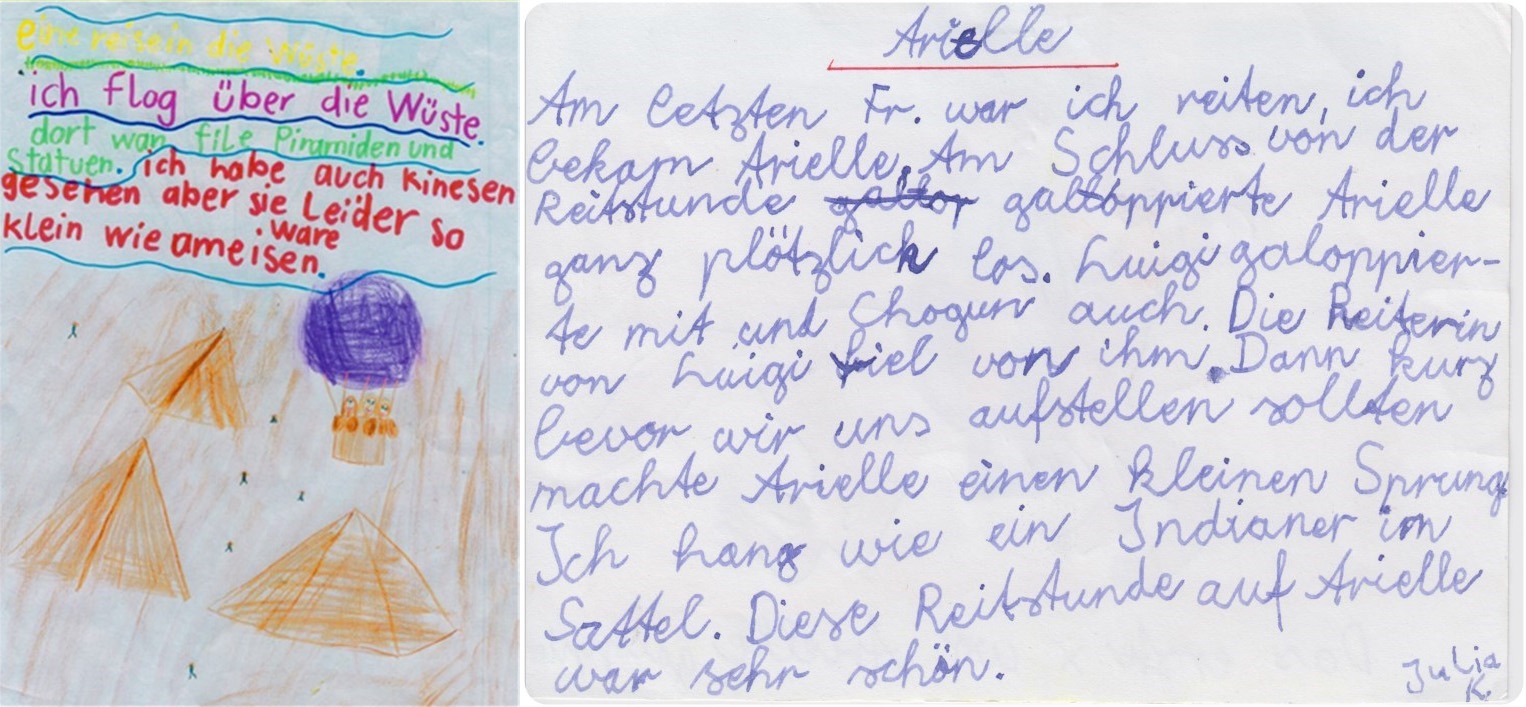 eine reise in die Wüste.
ich flog über die Wüste.
dort war file Piramiden und
Statuen. ich habe auch Kinesen
gesehen aber sie Leider so
klein wie ameisen. ware
Arielle
Am letzten Fr. war ich reiten, ich
bekam Arielle. Am Schluss von der
Reitstunde gallop galloppierte Arielle
ganz plötzlich los. Luigi galoppier-
te mit und Chogun auch. Die Reiterin
von Luigi fiel von ihm. Dann kurz
bevor wir uns aufstellen sollten
machte Arielle einen kleinen Sprung.
Ich hang wie ein Indianer im
Sattel. Diese Reitstunde auf Arielle
war sehr schön.
Julia
K.